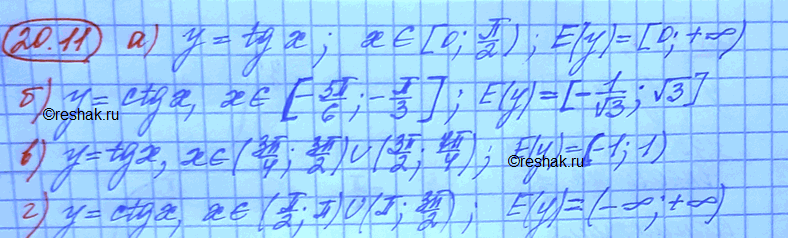 20.11 а) y = tg x ; x ∈ [0; π/2) ; E(y) = [0; +∞)
б) y = ctg x, x ∈ [-5π/6 ; -π/3] ; E(y) = [-1/√3 ; √3]
©reshak.ru
©reshak.ru
в) y = tg x, x ∈ (3π/4 ; 3π/2) ∪ (3π/2 ; 7π/4) ; E(y) = (-1; 1)
©reshak.ru
г) y = ctg x, x ∈ (π/2 ; π) ∪ (π ; 3π/2) ; E(y) = (-∞; +∞)